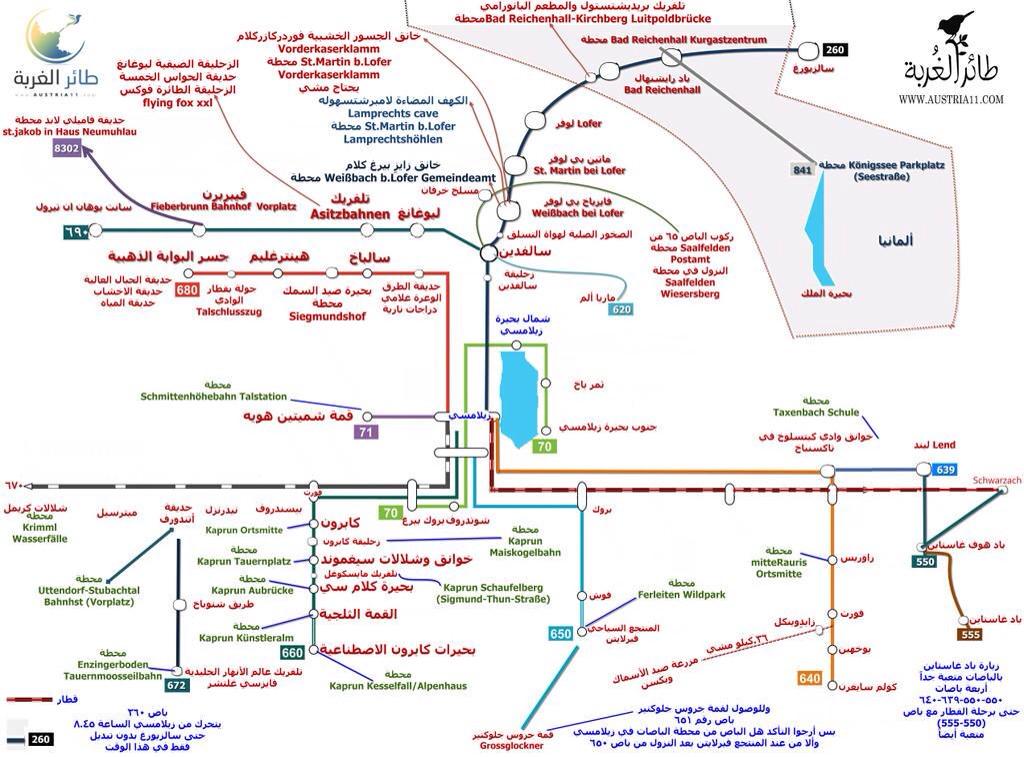 طائر الغربة
WWW.AUSTRIA11.COM
طائر الغُربة
WWW.AUSTRIA11.COM
تلفريك بريديشتستول والمطعم البانورامي
محطة Bad Reichenhall-Kirchberg Luitpoldbrücke
خانق الجسور الخشبية فوردركازركلام
Vorderkaserklamm
محطة St.Martin b.Lofer
Vorderkaserklamm
يحتاج مشي
محطة Bad Reichenhall Kurgastzentrum
260
سالزبورغ
باد رايشنهال
Bad Reichenhall
الزحليقة الصيفية ليوغانغ
حديقة الحواس الخمسة
الزحليقة الطائرة فوكس
flying fox xxl
الكهف المضاءة لامبرشتسهوله
Lamprechts cave
محطة St.Martin b.Lofer
Lamprechtshöhlen
حديقة فاميلي لاند محطة
st.jakob in Haus Neumuhlau
8302
لوفر Lofer
خانق زايز بيرغ كلام
محطة Weißbach b.Lofer Gemeindeamt
ماتين بي لوفر
St. Martin bei Lofer
مسلخ خرفان
فايزباخ بي لوفر
Weißbach bei Lofer
841
محطة Königssee Parkplatz
(Seestraße)
ألمانيا
بحيرة الملك
٦٩٠
سانت يوهان ان تيرول
فيبربرن
Fieberbrunn Bahnhof Vorplatz
تلفريك
Asitzbahnen
ليوغانغ
الصخور الصلبة لهواة التسلق
سالفدين
زحليقة
سالفدين
ركوب الباص ٦٥ من
محطة Saalfelden
Postamt
النزول في محطة
Saalfelden
Wiesersberg
ماريا ألم
620
جسر البوابة الذهبية
هينترغليم
سالباخ
حديقة الجبال العالية
حديقة الاخشاب
حديقة المياه
680
جولة بقطار
الوادي
Talschlusszug
بحيرة صيد السمك
محطة
Siegmundshof
حديقة الطرق
الوعرة غلامي
دراجات نارية
شمال بحيرة
زيلامسي
ثمر باخ
جنوب بحيرة زيلامسي
70
محطة
Schmittenhöhebahn Talstation
قمة شميتين هويه
71
زيلامسي
محطة
Taxenbach Schule
خوانق وادي كيتسلوخ في
تاكسنباخ
لیند Lend
639
Schwarzach
٦٧٠
شلالات كريمل
محطة
Krimml
Wasserfälle
ميترسيل
حديقة
أتندورف
نيدرنزل
بيسندروف
فورت
70
بروك بيرغ
شوندروف
بروك
Kaprun Ortsmitte
كابرون
زحليقة كابرون
محطة
Kaprun
Maiskogelbahn
محطة
Kaprun Tauernplatz
خوانق وشلالات سيغموند
تلفريك مايسكوغل
محطة
Kaprun Aubrücke
بحيرة كلام سي
Kaprun Schaufelberg
(Sigmund-Thun-Straße)
القمة الثلجية
محطة
Kaprun Künstleralm
660
بحيرات كابرون الاصطناعية
محطة
Kaprun Kesselfall/Alpenhaus
محطة
Uttendorf-Stubachtal
Bahnhst (Vorplatz)
طريق شتوباخ
محطة
Enzingerboden
Tauernmoosseilbahn
672
تلفريك عالم الأنهار الجليدية
فايزسي غلتشر
فوش
محطة
Ferleiten Wildpark
650
المنتجع السياحي
فيرلايتن
محطة
mitteRauris
Ortsmitte
راوريس
فورت
زايدوينكل
بوخهبن
٣٦ كيلو مشي
مزرعة صيد الأسماك
640
كولم سايغرن
باد هوف غاستاين
550
باد غاستاين
555
زيارة باد غاستاين
بالباصات متعبة جداً
أربعة باصات
٥٥٠-٥٥٠-٦٣٩-٦٤٠
حتى برحلة القطار مع باص
(555-550)
متعبة أيضاً
قطار
260
باص ٢٦٠
يتحرك من زيلامسي الساعة ٨.٤٥
حتى سالزبورغ بدون تبديل
فقط في هذا الوقت
قمة جروس جلوكنير
Grossglockner
وللوصول لقمة جروس جلوكنير
باص رقم ٦٥١
بس أرجوا التأكد هل الباص من محطة الباصات في زيلامسي
وألا من عند المنتجع فيرلايتن بعد النزول من باص ٦٥٠